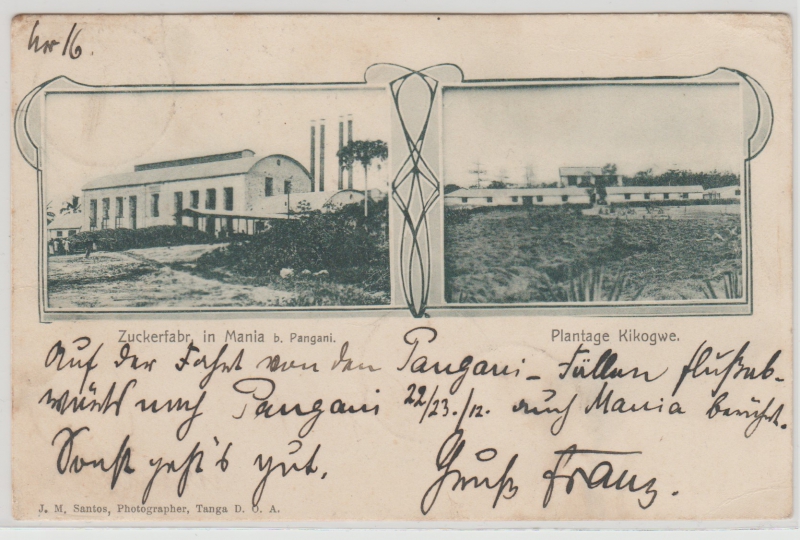 No 16.
Zuckerfabr. in Mania b. Pangani.
Plantage Kikogwe.
Auf der Fahrt von den Pangani-Fällen flußab-
wärts nach Pangani 22/23./12. auch Mania berührt.
Sonst geht's gut. Gruß Franz.
J. M. Santos, Photographer, Tanga D. O. A.